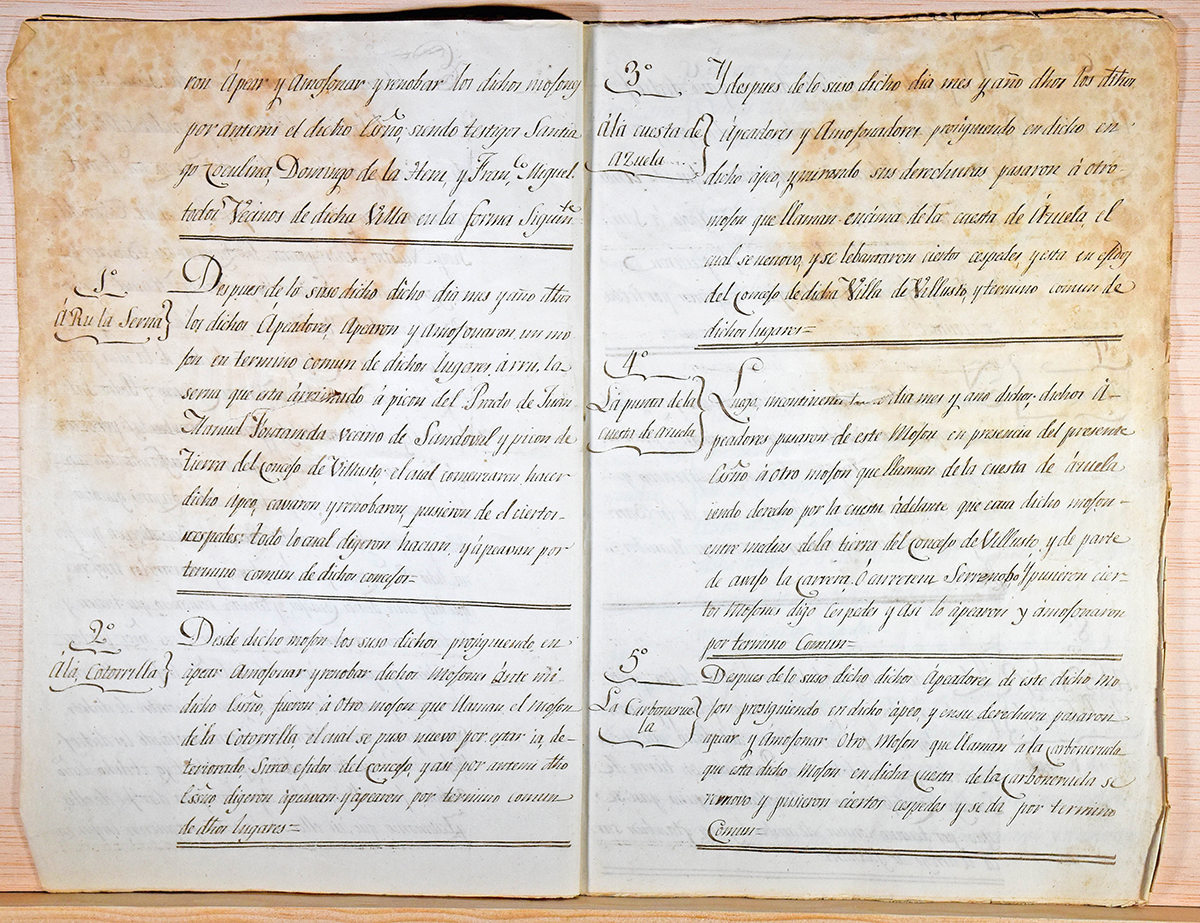 ron Ápear y Amojonar y renobar los dichos mojones
por antemi el dicho Essño, siendo testigos Santia
go Domingo de la Hera, y Fran.co Miguel
todos Vecinos de dicha Villa en la forma Siguiᵗᵉ
1º
Á Ru la Serna
Despues de lo suso dicho dicho dia mes y año dhos
los dichos Apeadores, Apearon y amojonaron un mo
jon en termino comun de dichos lugares á rru, la
serna que está arrimado á picon del Prado de Juan
Manuel Fontaneda vecino de Sandoval y picon de
Tierra del Concejo de Villusto, el cual comenzaron hacer
dicho ápeo, cavaron y renobaron, pusieron de el ciertos
zespedes: todo lo cual digeron hacian, y ápeavan por
termino comun de dichos concejos=
2º
Álá Cotorrilla
Desde dicho mojon los suso dichos, prosiguiendo en
ápear Amojonar y renobar dichos Mojones ánte mi
dicho Essño, fueron á otro mojon que llaman el Mojon
de la Cotorrilla, el cual se puso nuevo por estar ia, de-
teriorado Sirco ejidos del concejo, y asi por antemi dho
Essño digeron ápeavan y ápearon por termino comun
de dhos lugares=
3º
Álá cuesta de
Azuela
Y despues de lo suso dicho dia mes y año dhos los dhos
Ápeadores y Amojonadores, prosiguiendo en dicho en
dicho ápeo, y mirando sus derechuras pasaron á otro
mojon que llaman encima de la cuesta de Ázuela, el
cual se renovo, y se lebantaron ciertos cespedes, y esta en ejidos
del Concejo de dicha Villa de Villusto, y termino comun de
dichos lugares=
4º
La punta de la
cuesta de azuela
Luego, incontinenti dia mes y año dichos, dichos Á-
peadores pasaron de este Mojon en presencia del presente
Essño á otro mojon que llaman de la cuesta de ázuela
iendo derecho por la cuesta ádelante, que caia dicho mojon
entre medias de la tierra del Concejo de Villusto, y de parte
de avajo la carrera, ó carretera Serrenobó y pusieron cier-
tos Mojones digo Cespedes y Asi lo ápearon y ámojonaron
por termino Comun=
5º
La Carbonerue
la
Despues de lo suso dicho dichos Ápeadores de este dicho Mo-
jon prosiguiendo en dicho ápeo, y en su derechura pasaron
apear y Amojonar Otro Mojon que llaman a la Carboneruela
que esta dicho Mojon en dicha cuesta de la Carboneruela se
removo y pusieron ciertos cespedes y se da por termino
Comun=